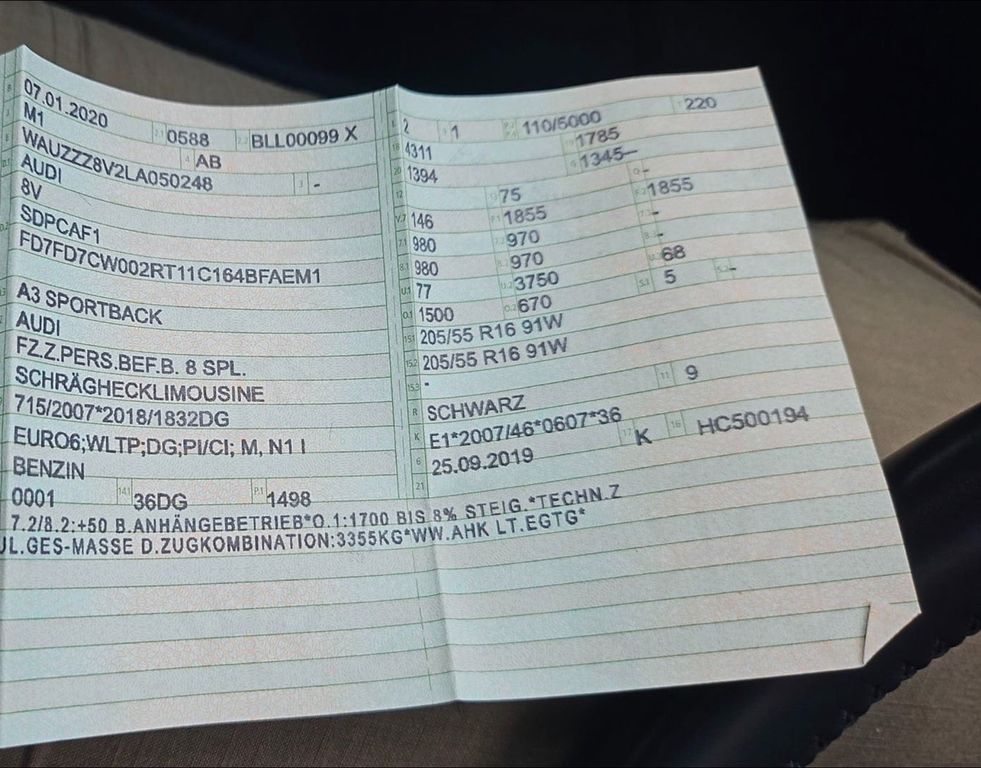 07.01.2020 0588 BLL00099 X
M1 AB
WAUZZZ8V2LA050248 -
AUDI
8V
SDPCAF1
FD7FD7CW002RT11C164BFAEM1
A3 SPORTBACK
AUDI
FZ.Z.PERS.BEF.B. 8 SPL.
SCHRÄGHECKLIMOUSINE
715/2007*2018/1832DG
EURO6;WLTP;DG;PI/CI; M, N1 I
BENZIN
0001 14.1 36DG P.1 1498
2 1 110/5000 220
4311 1785
1394 1345–
75 -
146 1855 1855
980 970 -
980 970 -
77 3750 68
1500 670 5 -
205/55 R16 91W
205/55 R16 91W
-
R SCHWARZ 11 9
K E1*2007/46*0607*36
6 25.09.2019 17 K 16 HC500194
21
7.2/8.2:+50 B.ANHÄNGEBETRIEB*O.1:1700 BIS 8% STEIG.*TECHN.Z
UL.GES-MASSE D.ZUGKOMBINATION:3355KG*WW.AHK LT.EGTG*